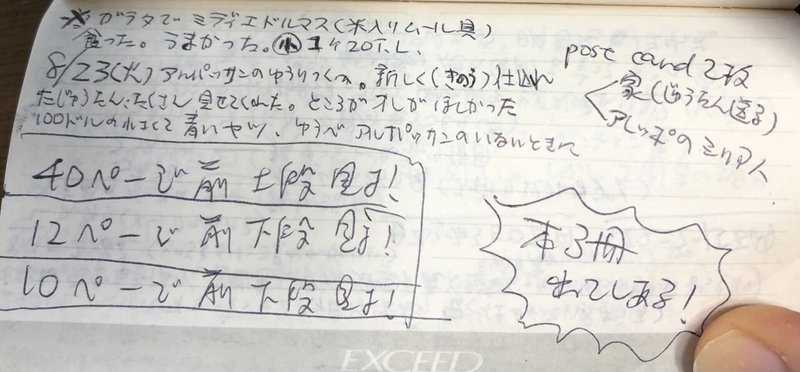 ※ ガラタで ミディエドルマス(米入りムール貝)
食った。うまかった。㊙ 1ヶ20T.L.
8/23(火) アルパッサンのゆうりつくつ。新しく(きのう)仕込れ
たじゅうたん、たくさん見せてくれた。ところがオレがほしかった
100ドルの小さくて青いヤツ、ゆうべアルパッサンのいないときに
post card 2枚
家(じゅうたん送る)
アレッポの
40ページ前上段見よ!
12ページ前下段見よ!
10ページ前下段見よ!
本3冊
出てしまる!
EXCEED